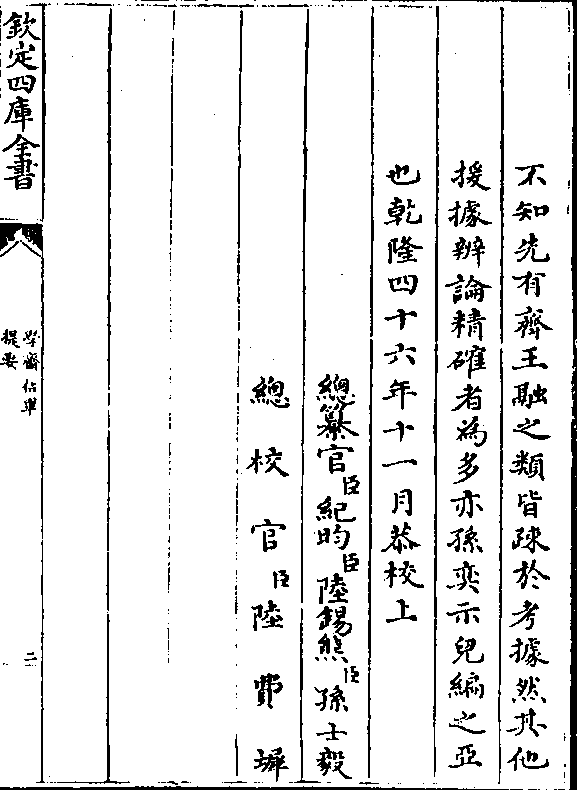 不知先有齊王融之類皆踈於考據然其他
援據辨論精確者為多亦孫奕示兒編之亞
也乾隆四十六年十一月恭校上
總纂官臣紀昀臣陸錫熊臣孫士毅
總校官臣陸費墀
欽定四庫全書
學齋佔畢
提要
二